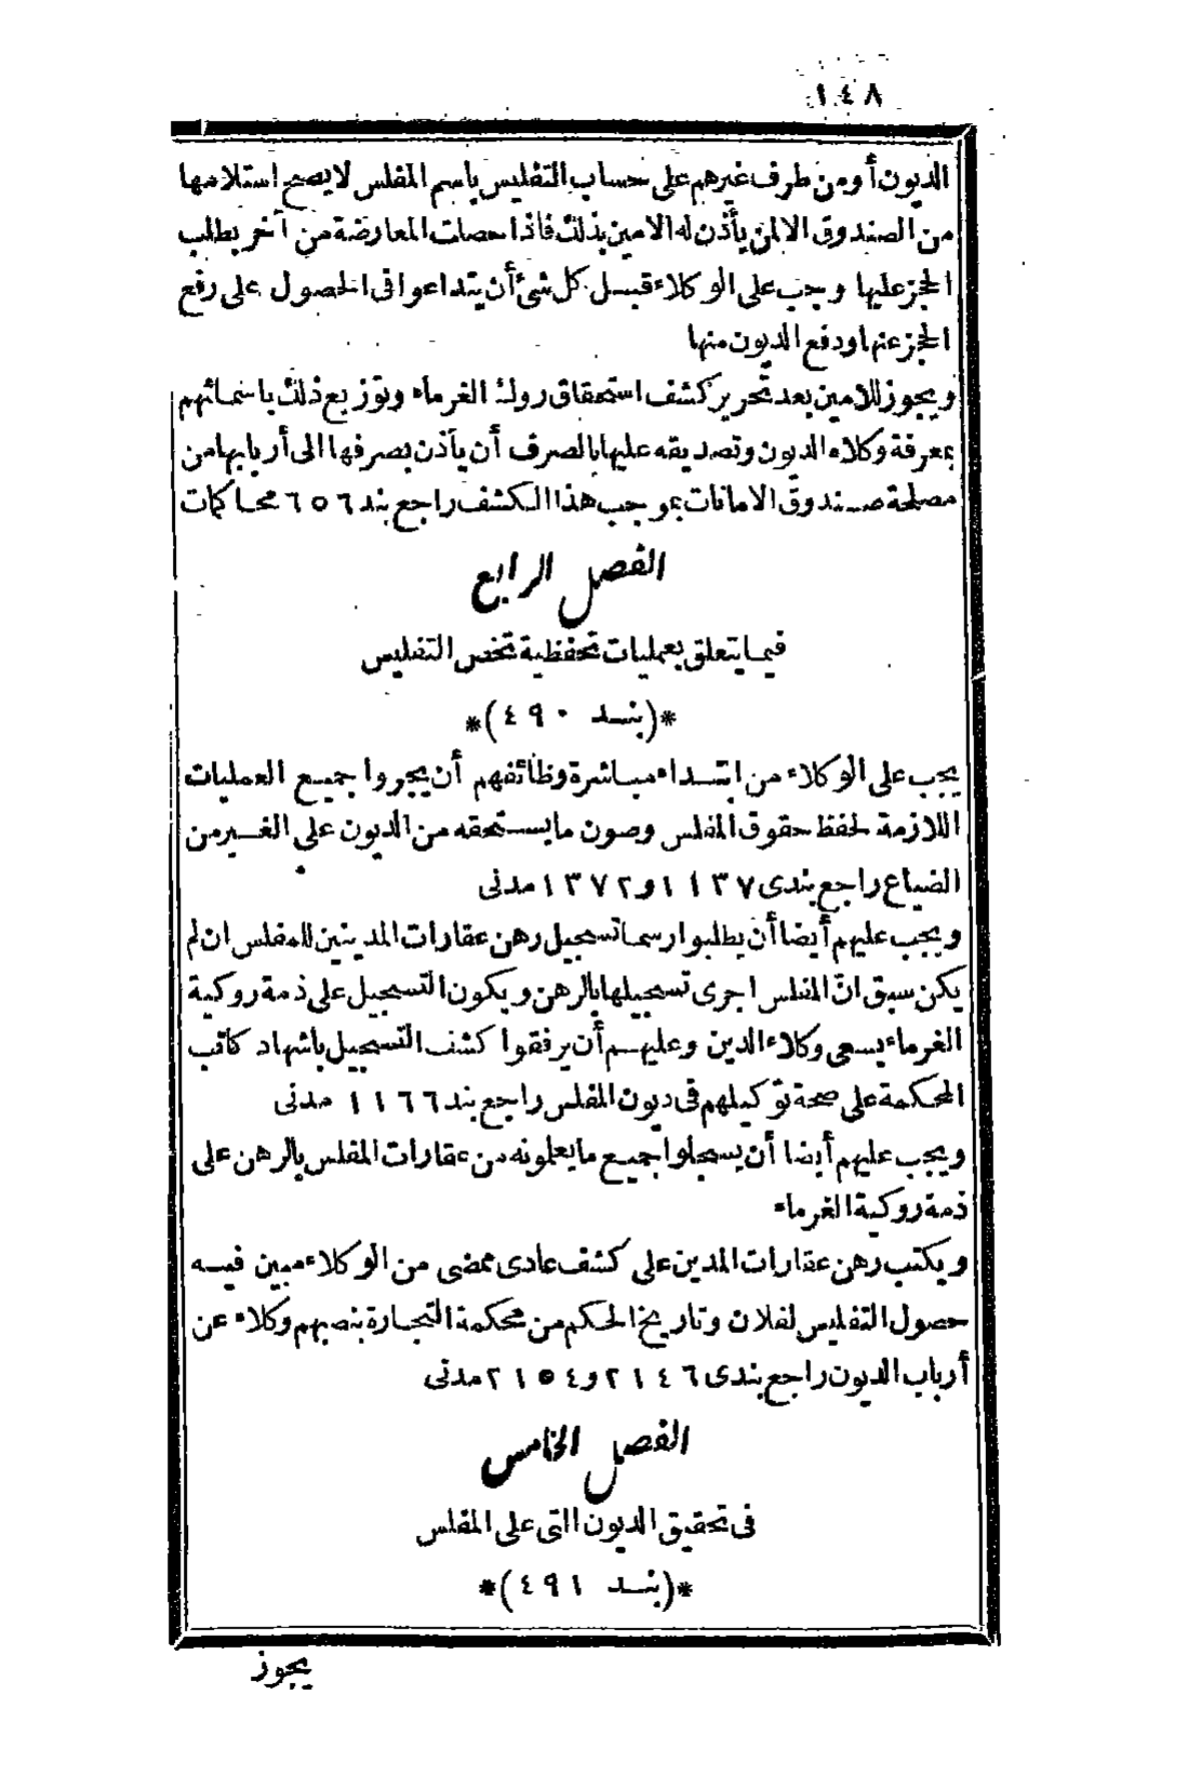 ١٤٨
الديون أو من طرف غيرهم على حساب التفليس باسم المفلس لا يصح استلامها
من الصندوق الا لمن يأذن له الامين بذلك فاذا حصلت المعارضة من آخر بطلب
الحجز عليها وجب على الوكلاء قبل كل شئ أن يتداعوا فى الحصول على رفع
الحجز عنها ودفع الديون منها
ويجوز للامين بعد تحرير كشف استحقاق روكة الغرماء وتوزيع ذلك باسمائهم
بمعرفة وكلاء الديون وتصديقه عليها بالصرف أن يأذن بصرفها الى أربابها من
مصلحة صندوق الامانات بموجب هذا الكشف راجع بند ٦٥٦ محاكمات
الفصل الرابع
فيما يتعلق بعمليات تحفظية تخص التفليس
*(بند ٤٩٠)*
يجب على الوكلاء من ابتداء مباشرة وظائفهم أن يجروا جميع العمليات
اللازمة لحفظ حقوق المفلس وصون ما يستحقه من الديون على الغير من
الضياع راجع بندى ١١٣٧ و١٣٧٢ مدنى
ويجب عليهم أيضا أن يطلبوا رسما تسجيل رهن عقارات المدينين للمفلس ان لم
يكن سبق ان المفلس اجرى تسجيلها بالرهن ويكون التسجيل على ذمة روكية
الغرماء بسعى وكلاء الدين وعليهم أن يرفقوا كشف التسجيل باشهاد كاتب
المحكمة على صحة توكيلهم فى ديون المفلس راجع بند ١١٦٦ مدنى
ويجب عليهم أيضا أن يسجلوا جميع ما يعلمونه من عقارات المفلس بالرهن على
ذمة روكية الغرماء
ويكتب رهن عقارات المدين على كشف عادى ممضى من الوكلاء مبين فيه
حصول التفليس لفلان وتاريخ الحكم من محكمة التجارة بنصبهم وكلاء عن
أرباب الديون راجع بندى ٢١٤٦ و٢١٥٤ مدنى
الفصل الخامس
فى تحقيق الديون التى على المفلس
*(بند ٤٩١)*
يجوز